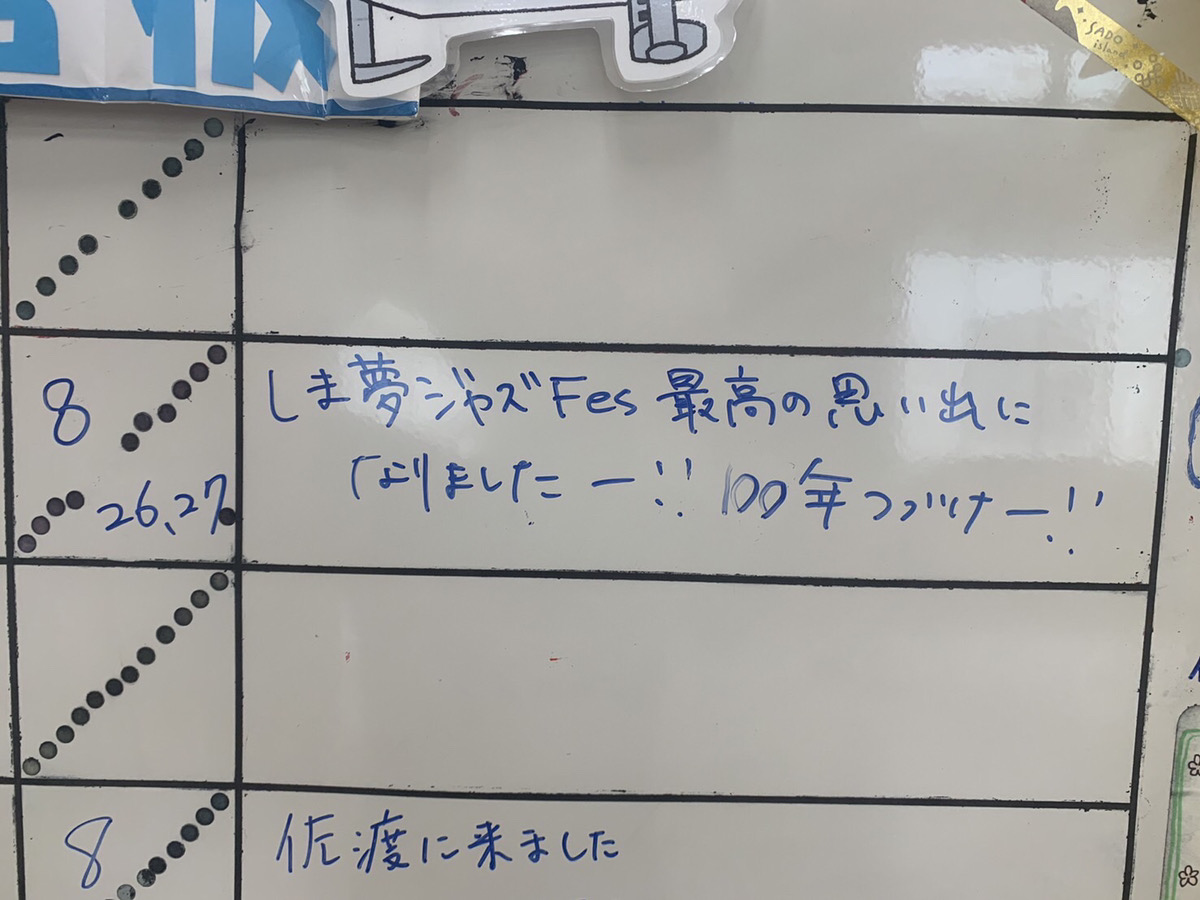 SADO
island
8
26,27
しま夢ジャズFes 最高の思い出に
なりましたー!! 100年つづけー!!
8
佐渡に来ました